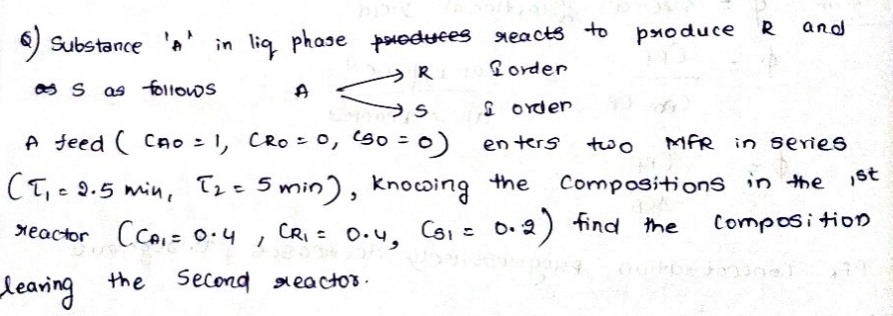 Q) Substance 'A' in liq phase produces reacts to produce R and
as S as follows A → R I order
→ S I order
A feed ( CA0 = 1, CR0 = 0, CS0 = 0) enters two MFR in series
(τ1 = 2.5 min, τ2 = 5 min), knowing the compositions in the 1st
reactor (CA1 = 0.4, CR1 = 0.4, CS1 = 0.2) find the composition
leaving the second reactor.